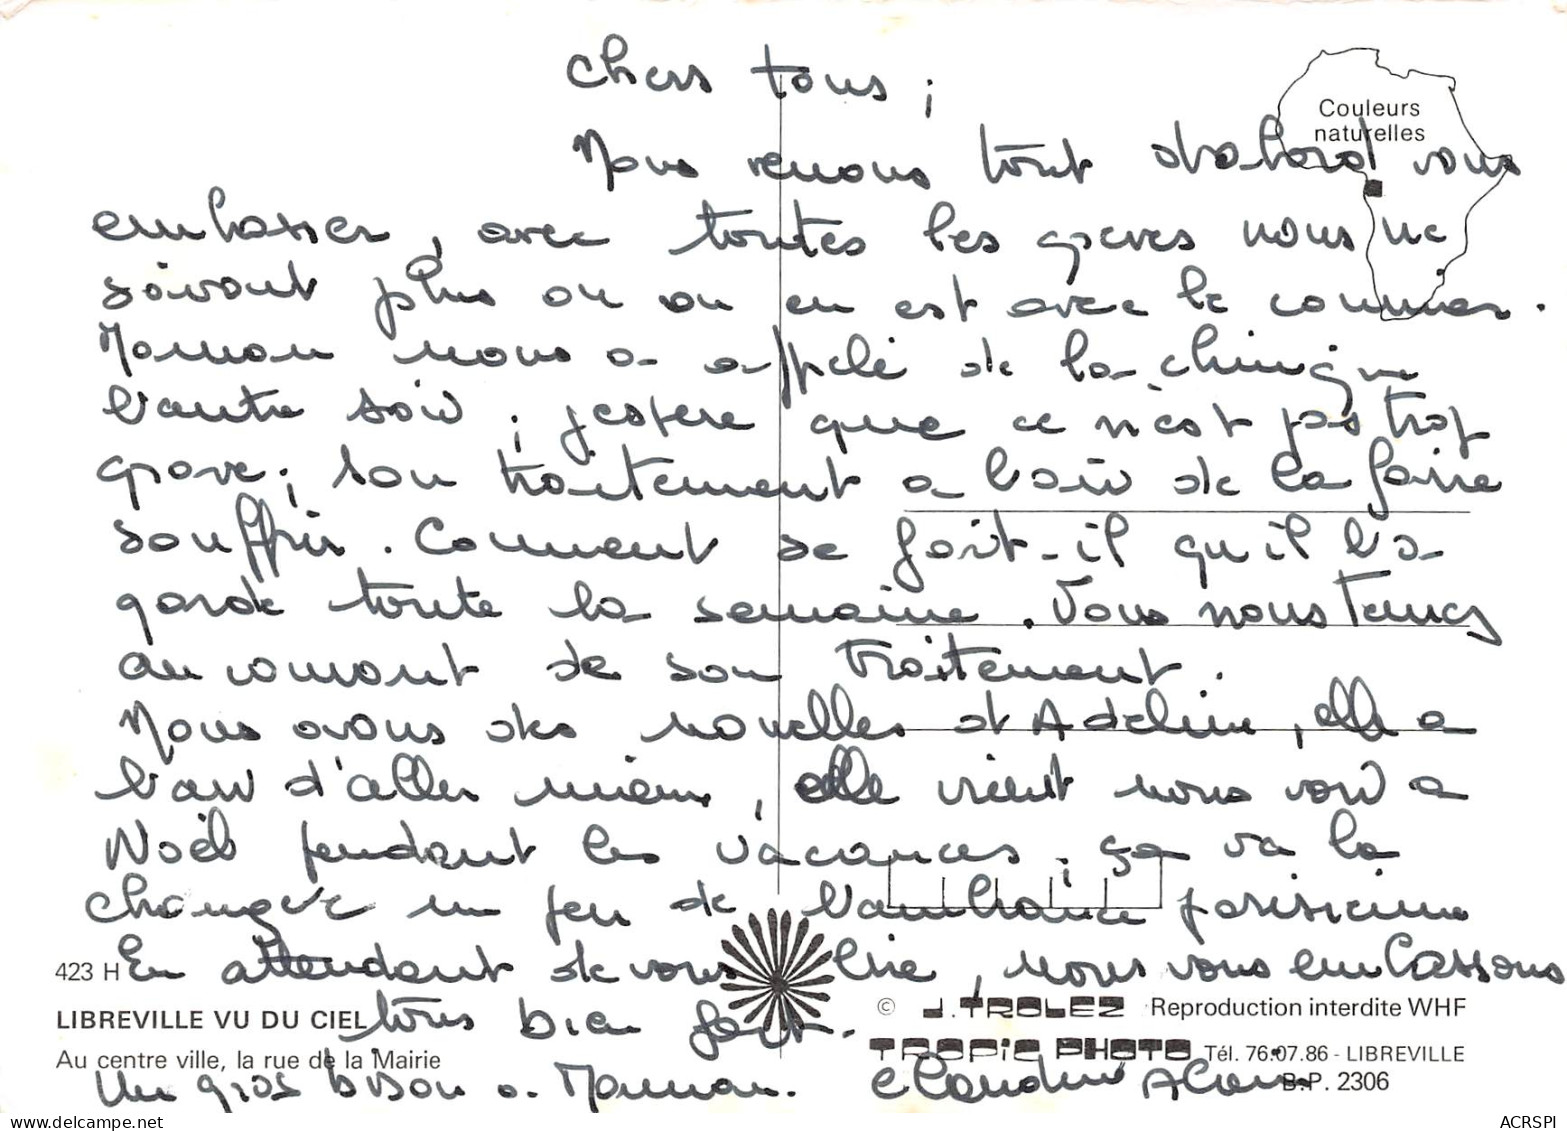 Chers tous ;
Couleurs
naturelles
Nous venons tout d'abord vous
embrasser, avec toutes les greves nous ne
savont plus ou on en est avec le courrier.
Maman nous a appelé de la chirurgie
l'autre soir ; j'espere que ce n'est pas trop
grave ; son traitement a l'air de la faire
souffrir. Comment se fait-il qu'il l'a
garde toute la semaine. Vous nous tenez
au courant de son traitement.
Nous avons des nouvelles d'Adeline, elle a
l'air d'aller mieux, elle vient nous voir a
Noël pendant les vacances ; ça va la
changer un peu de l'ambiance parisienne
En attendant de vous lire, nous vous embrassons
tous bien fort.
Un gros bison a Maman. Claudine Alain
423 H
LIBREVILLE VU DU CIEL
Au centre ville, la rue de la Mairie
© J. TROLEZ Reproduction interdite WHF
TROPIC PHOTO Tél. 76.07.86 - LIBREVILLE
B.P. 2306
www.delcampe.net
ACRSPI